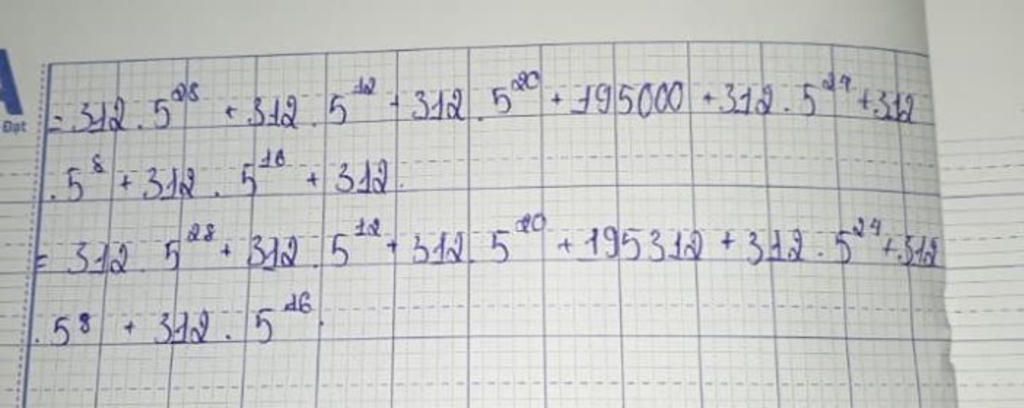 A
Đạt
= 312 . 5^28 + 312 . 5^12 + 312 . 5^20 + 195000 + 312 . 5^24 + 312
. 5^8 + 312 . 5^16 + 312.
= 312 . 5^28 + 312 . 5^12 + 312 . 5^20 + 195312 + 312 . 5^24 + 312
. 5^8 + 312 . 5^16.